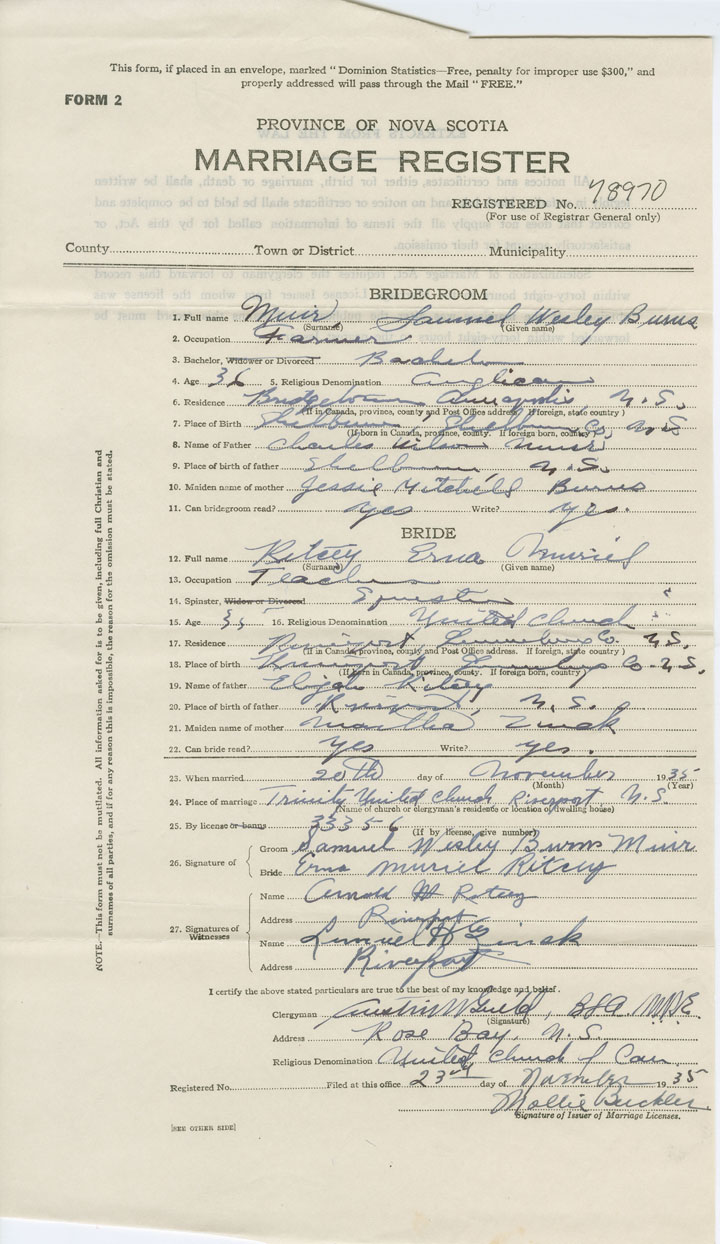 This form, if placed in an envelope, marked " Dominion Statistics—Free, penalty for improper use $300," and
properly addressed will pass through the Mail " FREE."
FORM 2
PROVINCE OF NOVA SCOTIA
MARRIAGE REGISTER
REGISTERED No. 78970
(For use of Registrar General only)
County Town or District Municipality
BRIDEGROOM
1. Full name Muir, Samuel Wesley Burns
(Surname) (Given name)
2. Occupation Farmer
3. Bachelor, Widower or Divorced Bachelor
4. Age 36 5. Religious Denomination Anglican
6. Residence Bridgetown Annapolis, N.S.
(If in Canada, province, county and Post Office address. If foreign, state country)
7. Place of Birth Shelburne, Shelburne Co, N.S
(If born in Canada, province, county. If foreign born, country)
8. Name of Father Charles Wilson Muir
9. Place of birth of father Shelburne, N.S.
10. Maiden name of mother Jessie Mitchell Burns
11. Can bridegroom read? yes Write? yes.
BRIDE
12. Full name Ritcey Erna Muriel
(Surname) (Given name)
13. Occupation Teacher
14. Spinster, Widow or Divorced Spinster
15. Age 16. Religious Denomination United Church
17. Residence Riverport, Lunenburg Co. N.S.
(If in Canada, province, county and Post Office address. If foreign state country)
18. Place of birth Riverport Lunenburg Co. N.S.
(If born in Canada, province, county. If foreign born, country)
19. Name of father Elijah Ritcey
20. Place of birth of father Riverport, N.S.
21. Maiden name of mother Martha Zinck
22. Can bride read? yes Write? yes.
23. When married 20th day of November 1935
(Month) (Year)
24. Place of marriage Trinity United Church Riverport N.S.
(Name of church or clergyman's residence or location of dwelling house)
25. By license or banns 33356
(If by license, give number)
26. Signature of Groom Samuel Wesley Burns Muir
Bride Erna Muriel Ritcey
27. Signatures of Witnesses
Name Arnold Ritcey
Address Riverport
Name Lemuel Zinck
Address Riverport
I certify the above stated particulars are true to the best of my knowledge and belief.
Clergyman B.S.A.
(Signature)
Address Rose Bay, N.S.
Religious Denomination United Church of Can
Registered No. Filed at this office 23rd day of November 1935
Mollie Buckler
Signature of Issuer of Marriage Licenses.
[SEE OTHER SIDE]
NOTE.—This form must not be mutilated. All information asked for is to be given, including full Christian and
surnames of all parties, and if for any reason this is impossible, the reason for the omission must be stated.